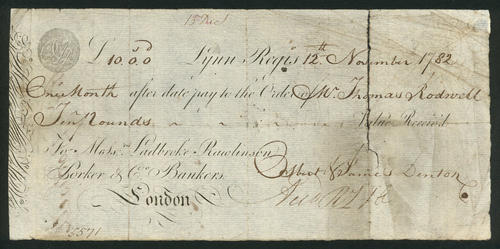 15 Dec
£10.0.0 Lynn Regis 12th November 1782
One Month after date pay to the Order of Mr. Thomas Rodwell
Ten Pounds Value Received
To Messrs. Ladbroke Rawlinson
Porker & Co. Bankers
London
& James Denton
5571